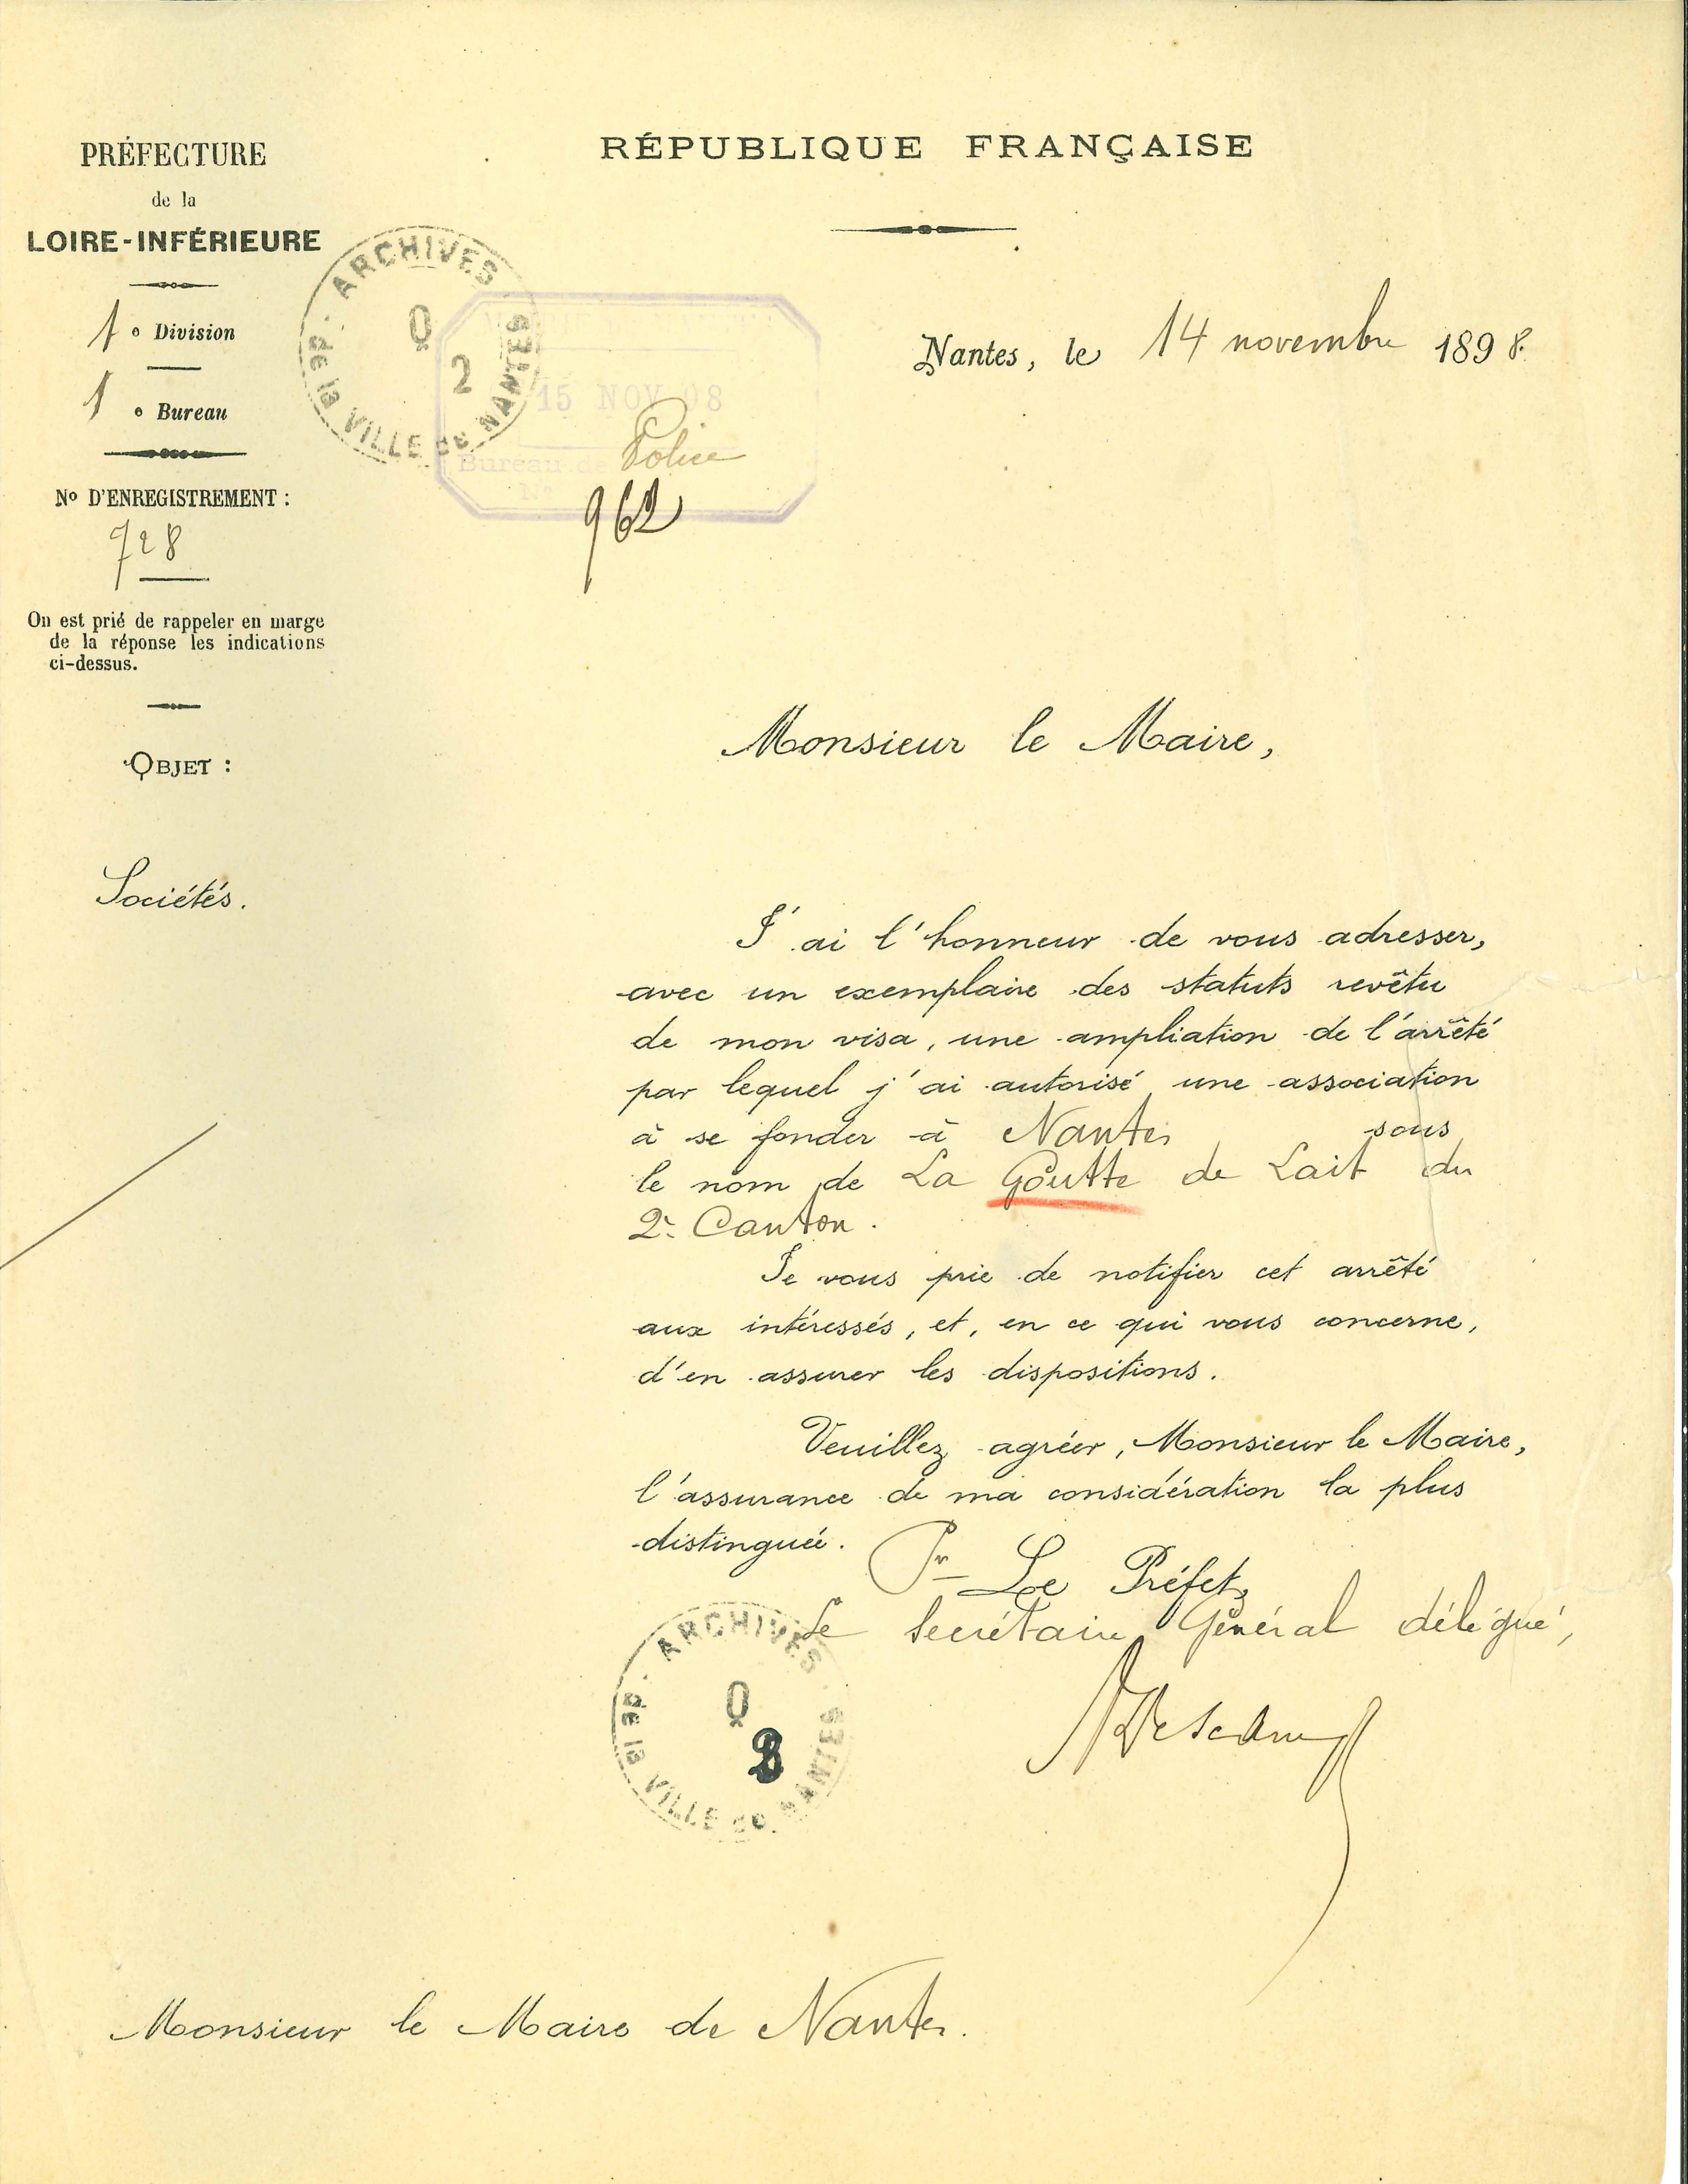 PRÉFECTURE
de la
LOIRE-INFÉRIEURE
1e Division
1e Bureau
No D'ENREGISTREMENT :
728
On est prié de rappeler en marge
de la réponse les indications
ci-dessus.
OBJET :
Sociétés.
RÉPUBLIQUE FRANÇAISE
ARCHIVES de la VILLE de NANTES
Q
2
15 NOV 98
Bureau de Police
962
Nantes, le 14 novembre 1898.
Monsieur le Maire,
J'ai l'honneur de vous adresser,
avec un exemplaire des statuts revêtu
de mon visa, une ampliation de l'arrêté
par lequel j'ai autorisé une association
à se fonder à Nantes sous
le nom de La Goutte de Lait du
2e Canton.
Je vous prie de notifier cet arrêté
aux intéressés, et, en ce qui vous concerne,
d'en assurer les dispositions.
Veuillez agréer, Monsieur le Maire,
l'assurance de ma considération la plus
distinguée.
Pr Le Préfet,
Le Secrétaire Général délégué,
ARCHIVES de la VILLE de NANTES
Q
Monsieur le Maire de Nantes.